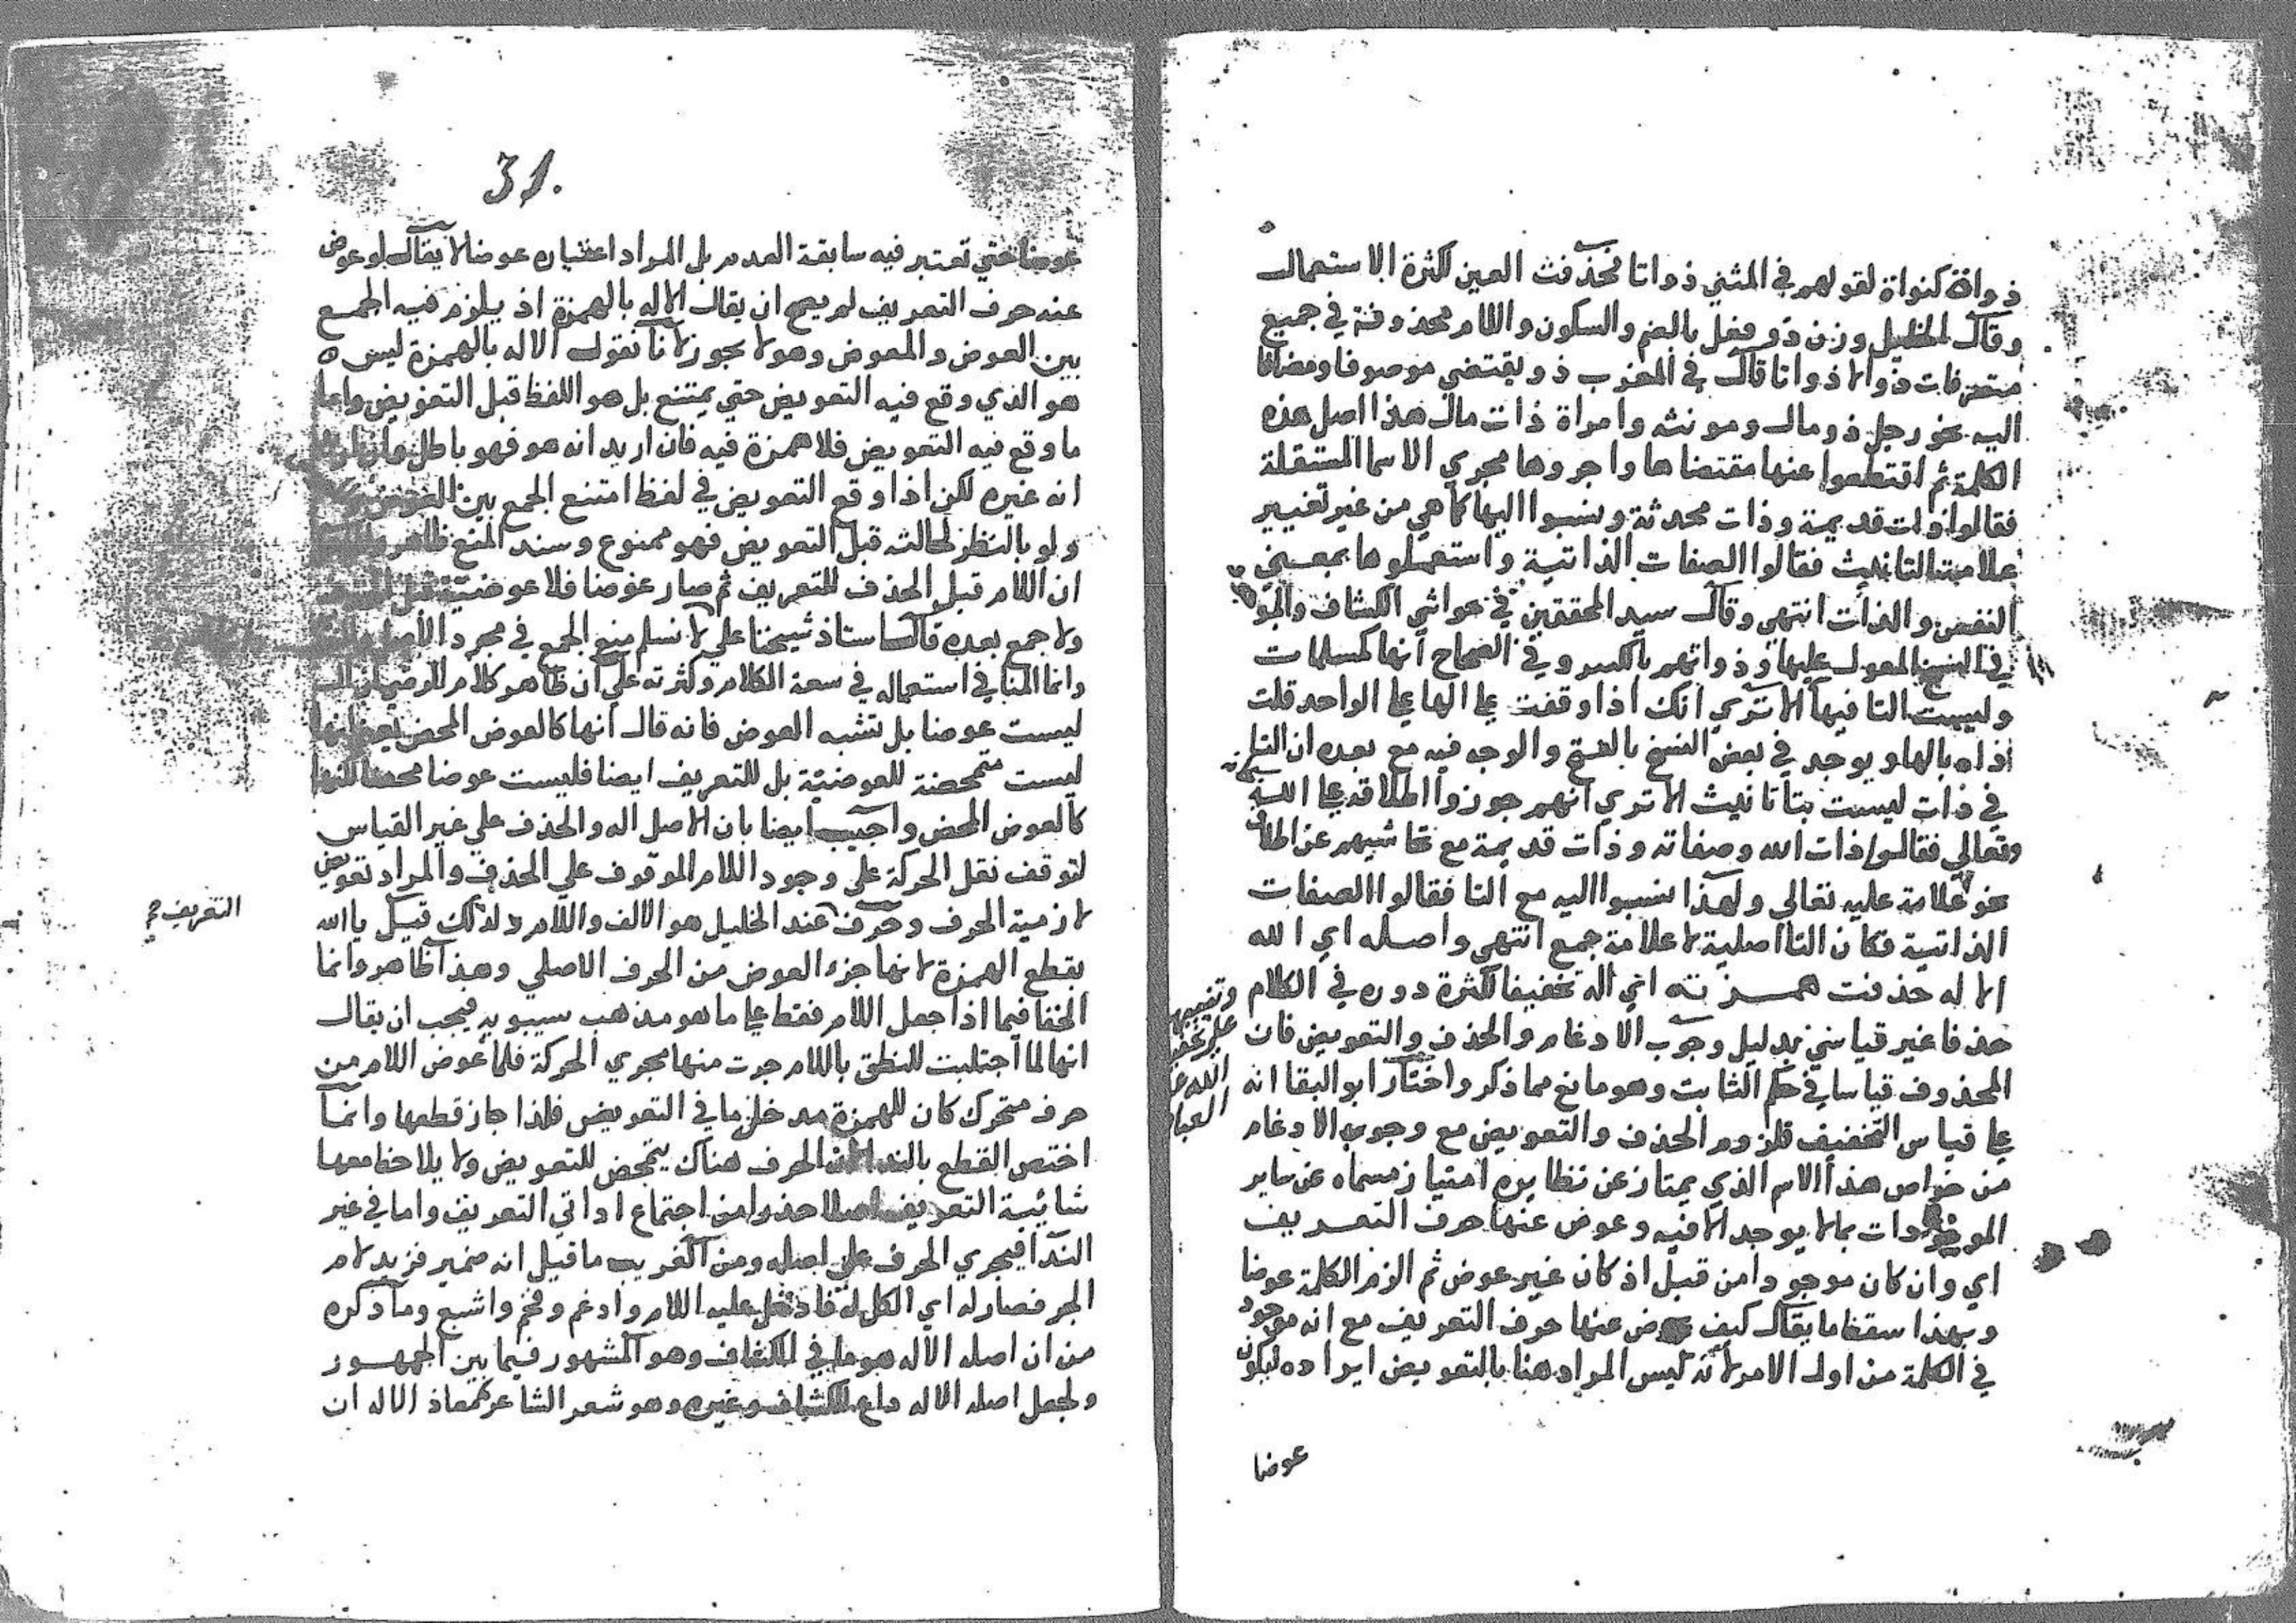 ذواة كنواة لقولهم في المثني ذواتا فحذفت العين لكثرة الاستعمال
وقال الخليل وزن ذو فعل بالضم والسكون واللام محذوفة في جميع
متصرفات ذو الا ذواتا قال في المغرب ذو يقتضي موصوفا ومضافا
اليه نحو رجل ذو مال ومونثه وامراة ذات مال هذا اصل هذه
الكلمة ثم اقتطعوا عنها مقتضاها واجروها مجري الاسما المستقلة
فقالوا ذات قديمة وذات محدثة ونسبوا اليها كما هي من غير تغيير
علامة التانيث فقالوا الصفات الذاتية واستعملوها بمعني
النفس والذات انتهي وقال سيد المحققين في حواشي الكشاف
في النسخ المعول عليها وذواتهم بالكسر وفي الصحاح انها كمسلمات
وليست التا فيها الا تري انك اذا وقفت علي الها علي الواحد قلت
ذاه بالها ويوجد في بعض النسخ بالفتح والوجه فيه مع بعده ان التا
في ذات ليست بتا تانيث الا تري انهم جوزوا اطلاقه علي الله
وتعالي فقالوا ذات الله وصفاته وذات قديمة مع تحاشيهم عن اطلاق
نحو علامة عليه تعالي ولهذا نسبوا اليه مع التا فقالوا الصفات
الذاتية فكان التا اصلية لا علامة جمع انتهي واصله اي الله
الاله حذفت همزته اي اله تخفيفا لكثرة دوره في الكلام
حذفا غير قياسي بدليل وجوب الادغام والحذف والتعويض فان
المحذوف قياسا في حكم الثابت وهو مانع مما ذكر واختار ابو البقا انه
علي قياس التخفيف فلزوم الحذف والتعويض مع وجوب الادغام
من خواص هذا الاسم الذي يمتاز عن نظايره امتياز مسماه عن ساير
الموجودات بما لا يوجد الا فيه وعوض عنها حرف التعريف
اي وان كان موجودا من قبل اذ كان غير عوض ثم الزم الكلمة عوضا
وبهذا سقط ما يقال كيف عوض عنها حرف التعريف مع انه موجود
في الكلمة من اول الامر لانه ليس المراد هنا بالتعويض ايراده ليكون
عوضا
31.
عوضا حتي تعتبر فيه سابقة العدم بل المراد اعتباره عوضا لا يقال لو عوض
عنه حرف التعريف لم يصح ان يقال الاله بالهمزة اذ يلزم فيه الجمع
بين العوض والمعوض وهو لا يجوز لانا نقول الاله بالهمزة ليس
هو الذي وقع فيه التعويض حتي يمتنع بل هو اللفظ قبل التعويض واما
ما وقع فيه التعويض فلا همزة فيه فان اريد انه هو فهو باطل وان
انه غيره لكن اذا وقع التعويض في لفظ امتنع الجمع بين
ولو بالنظر لحالته قبل التعويض فهو ممنوع وسند المنع ظاهر
ان اللام قبل الحذف للتعريف ثم صار عوضا فلا عوضية قبل
ولا جمع بعده قال استاذ شيخنا علي لا نسلم منع الجمع في مجرد الاصل
وانما المنافي استعماله في سعة الكلام وكثرته علي ان ظاهر كلام الرضي ان
ليست عوضا بل تشبه العوض فانه قال انها كالعوض المحض يعني انها
ليست متمحضة للعوضية بل للتعريف ايضا فليست عوضا محضا لكنها
كالعوض المحض واجيب ايضا بان الاصل اله والحذف علي غير القياس
لتوقف نقل الحركة علي وجود اللام الموقوف علي الحذف والمراد تعويض
لازمية الحرف وحرف عند الخليل هو الالف واللام ولذلك قيل ياالله
التعريف صح
بقطع الهمزة لانها جزء العوض من الحرف الاصلي وهذا ظاهر وانما
الخفا فيما اذا جعل اللام فقط علي ما هو مذهب سيبويه فيجب ان يقال
انها لما اجتلبت للنطق باللام جرت منها مجري الحركة فلما عوض اللام من
حرف متحرك كان للهمزة مدخل ما في التعويض فلذا جاز قطعها وانما
اختص القطع بالندا لان الحرف هناك يتمحض للتعويض ولا يلاحظ معها
شائبية التعريف اصلا حذرا من اجتماع اداتي التعريف واما في غير
الندا فيجري الحرف علي اصله ومن الغريب ما قيل انه ضمير فزيد لام
الجر فصار له اي الكل له فادخل عليه اللام وادغم وفخم واشبع وما ذكره
من ان اصله الاله هو ما في الكشاف وهو المشهور فيما بين الجمهور
ولجعل اصله الاله داع للكشاف وغيره وهو شعر الشاعر كمعاذ الاله ان